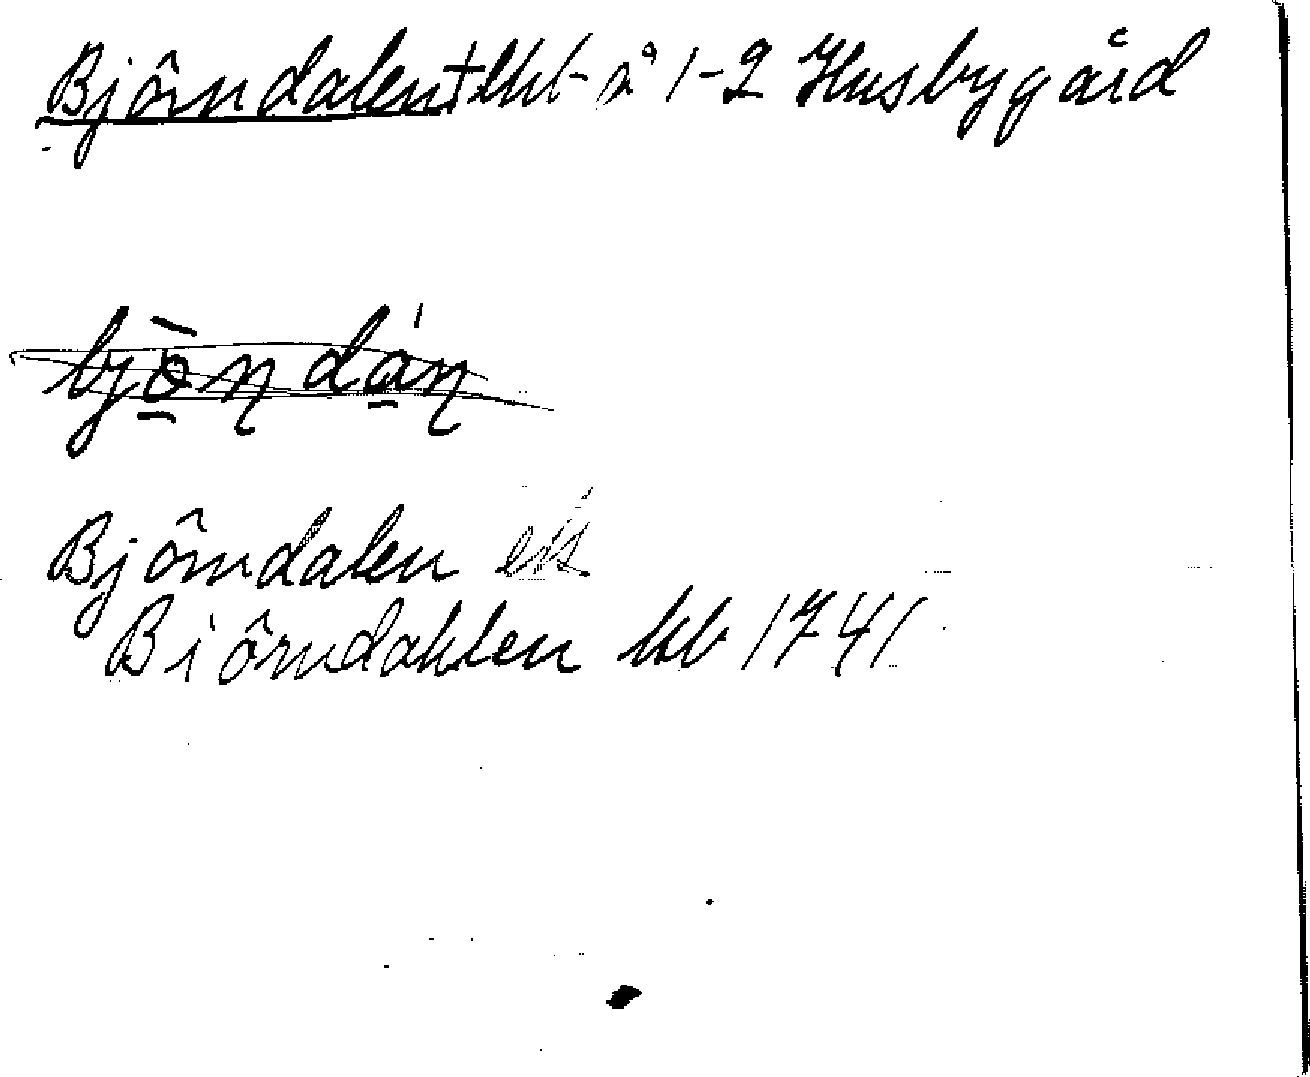 Björndalen † på 1-2 Husbygård
bjön dán
Björndalen
Biörndahlen kb 1741